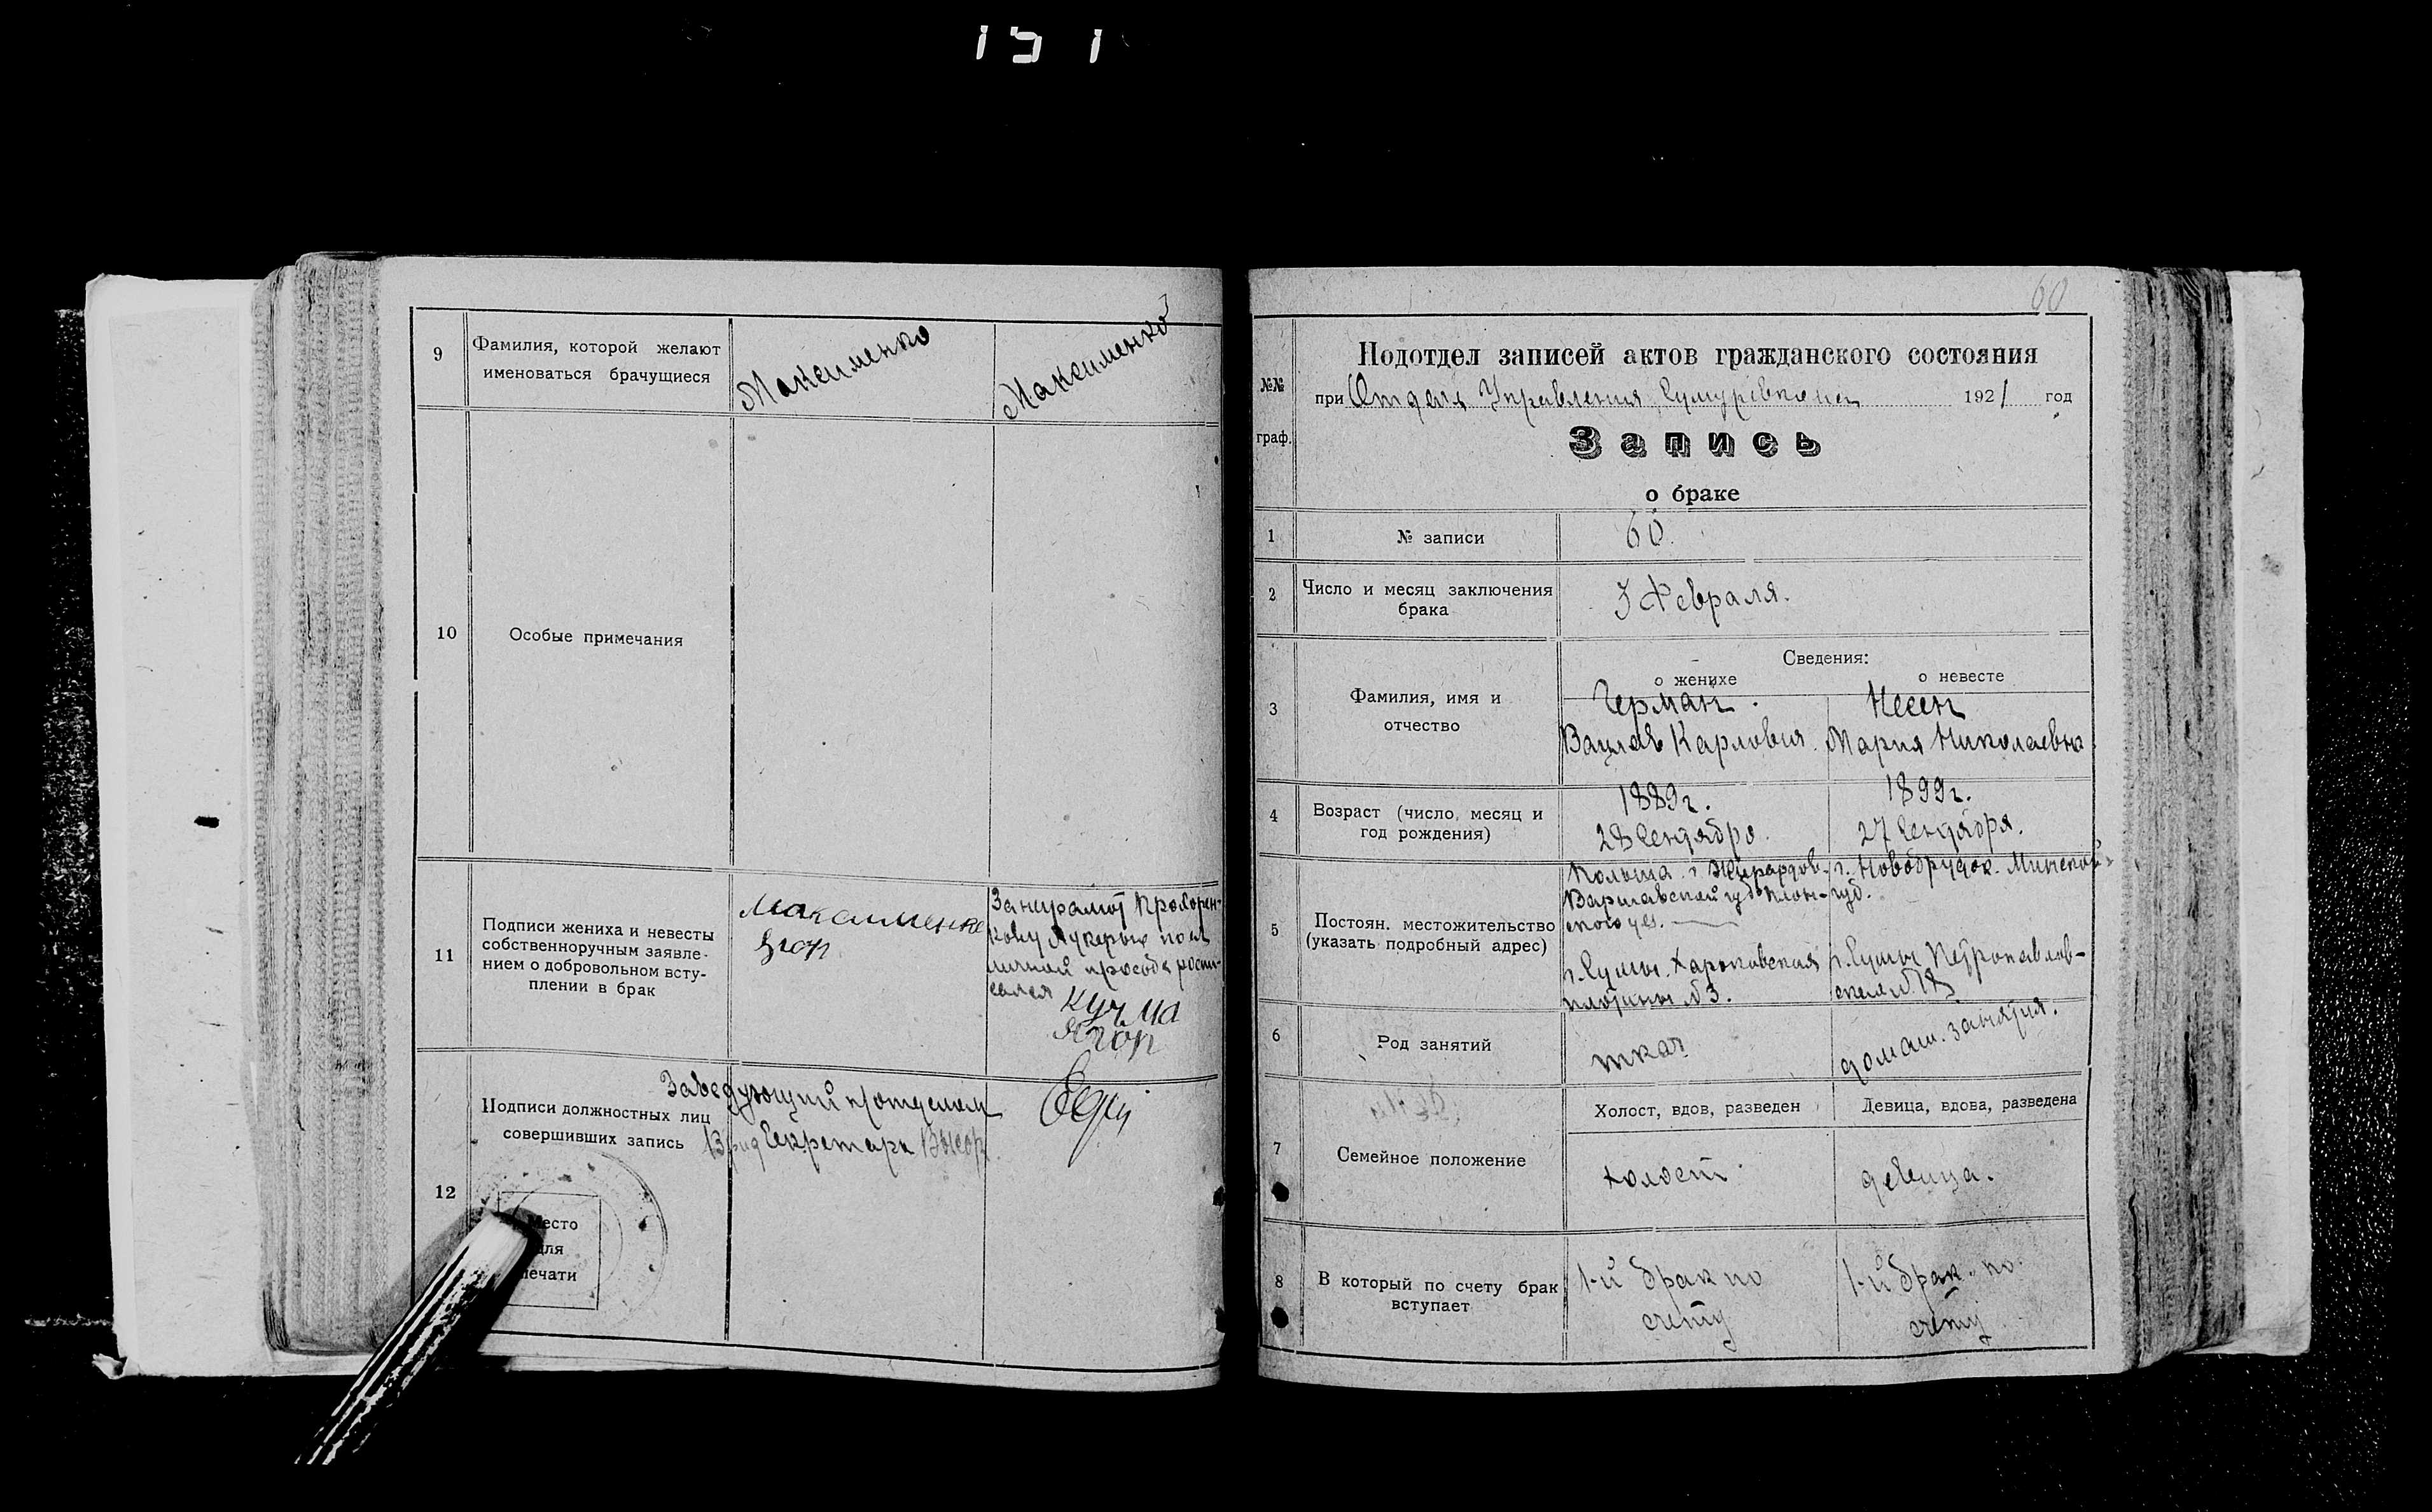 151
9
Фамилия, которой желают
именоваться брачущиеся
Максименко
Максименко
10
Особые примечания
11
Подписи жениха и невесты
собственноручным заявле-
нием о добровольном всту-
плении в брак
Максименко
За неграмот Прохорен-
кову Лукерью по ея
личной просьбе распи-
сался
Кучма
12
Подписи должностных лиц
совершивших запись
Заведующий п/отделом
Секретаря
Место
для
печати
60
№№
граф.
Подотдел записей актов гражданского состояния
при Отделе Управления Сумуревкома 1921 год
Запись
о браке
1
№ записи
60.
2
Число и месяц заключения
брака
3 Февраля.
Сведения:
о женихе
о невесте
3
Фамилия, имя и
отчество
Герман
Вацлав Карлович
Несен
Мария Николаевна
4
Возраст (число, месяц и
год рождения)
1889 г.
28 Сентября.
1899 г.
27 Сентября.
5
Постоян. местожительство
(указать подробный адрес)
Польша г. Жирардов
Варшавской губ Блон-
ского уез.
г. Сумы. Харьковская
плотины №3.
г. Новогрудок. Минской
губ.
г. Сумы Петропавлов-
ская №
6
Род занятий
ткач
домаш. занятия.
7
Семейное положение
Холост, вдов, разведен
Девица, вдова, разведена
холост
девица.
8
В который по счету брак
вступает
1-й брак по
счету
1-й брак по
счету